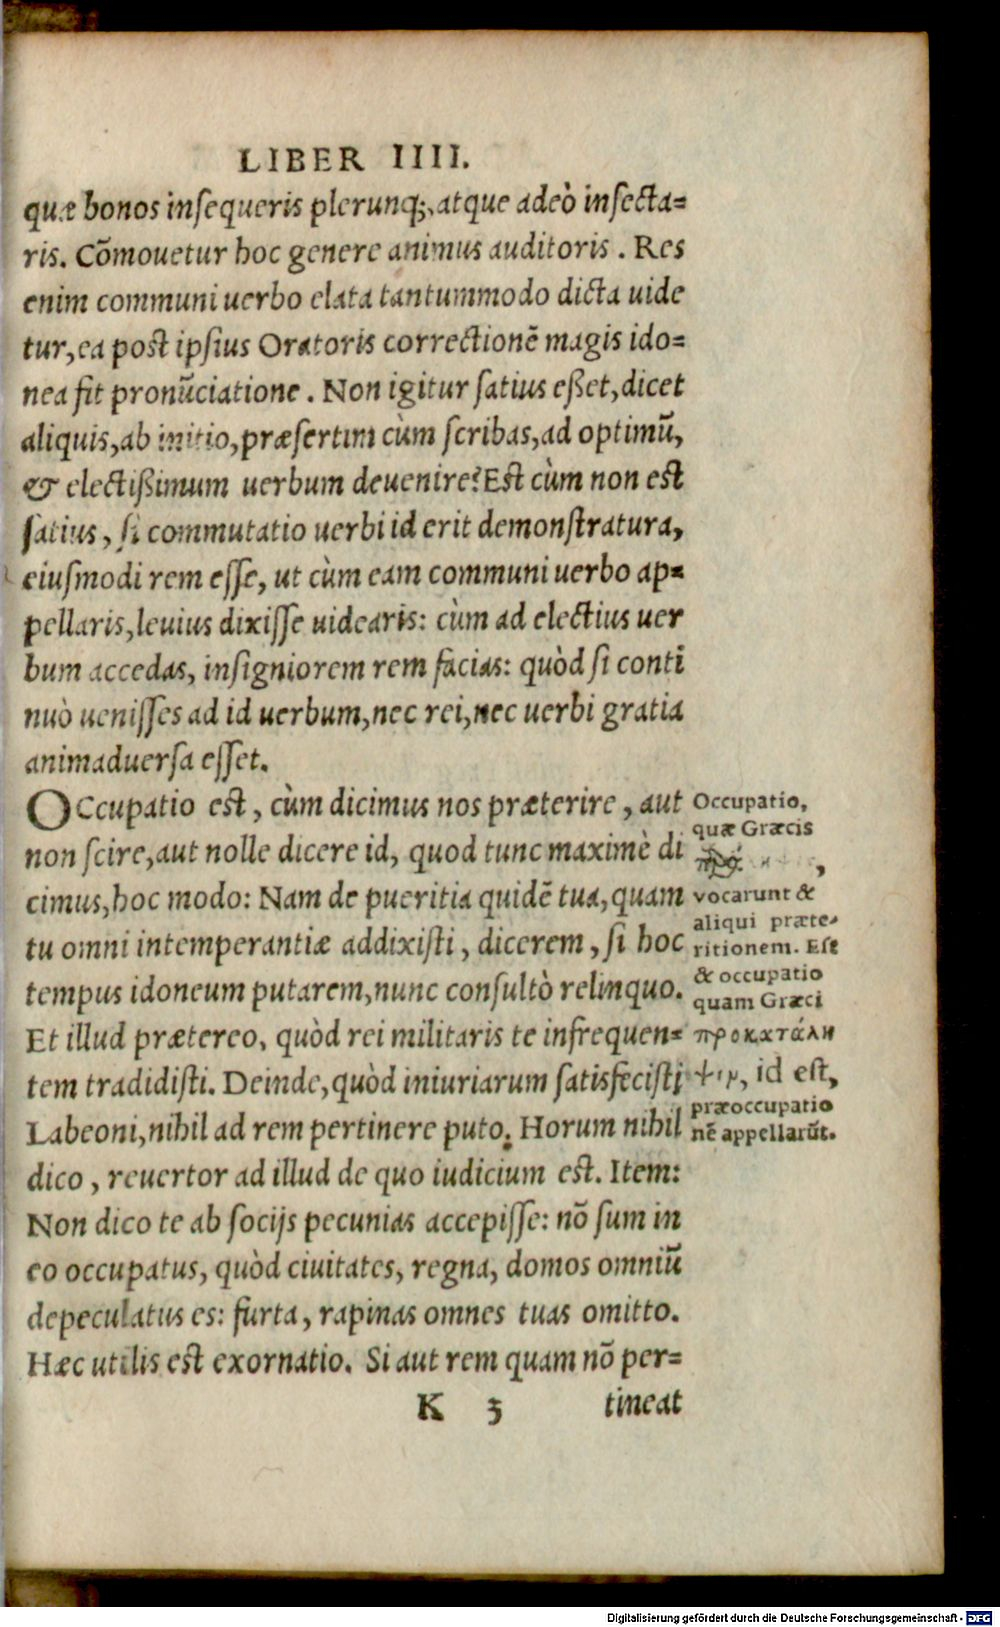 LIBER IIII.
quæ bonos inſequeris plerunq;, atque adeò inſecta=
ris. Cõmouetur hoc genere animus auditoris. Res
enim communi uerbo elata tantummodo dicta uide
tur, ea poſt ipſius Oratoris correctionẽ magis ido=
nea fit pronũciatione. Non igitur ſatius eßet, dicet
aliquis, ab initio, præſertim cùm ſcribas, ad optimũ,
& electißimum uerbum deuenire? Eſt cùm non eſt
ſatius, ſi commutatio uerbi id erit demonſtratura,
eiuſmodi rem eſſe, ut cùm eam communi uerbo ap=
pellaris, leuius dixiſſe uidearis: cùm ad electius uer
bum accedas, inſigniorem rem facias: quòd ſi conti
nuò ueniſſes ad id uerbum, nec rei, nec uerbi gratia
animaduerſa eſſet.
OCcupatio eſt, cùm dicimus nos præterire, aut
non ſcire, aut nolle dicere id, quod tunc maximè di
cimus, hoc modo: Nam de pueritia quidẽ tua, quam
tu omni intemperantiæ addixiſti, dicerem, ſi hoc
tempus idoneum putarem, nunc conſultò relinquo.
Et illud prætereo, quòd rei militaris te infrequen=
tem tradidiſti. Deinde, quòd iniuriarum ſatisfeciſti
Labeoni, nihil ad rem pertinere puto. Horum nihil
dico, reuertor ad illud de quo iudicium eſt. Item:
Non dico te ab ſocijs pecunias accepiſſe: nõ ſum in
eo occupatus, quòd ciuitates, regna, domos omniũ
depeculatus es: furta, rapinas omnes tuas omitto.
Hæc utilis eſt exornatio. Si aut rem quam nõ per=
K 3 tineat
Occupatio,
quæ Græcis
,
vocarunt &
aliqui præte-
ritionem. Eſt
& occupatio
quam Græci
προκατάλη
ψιν, id eſt,
præoccupatio
nẽ appellarũt.
Digitalisierung gefördert durch die Deutsche Forschungsgemeinschaft - DFG